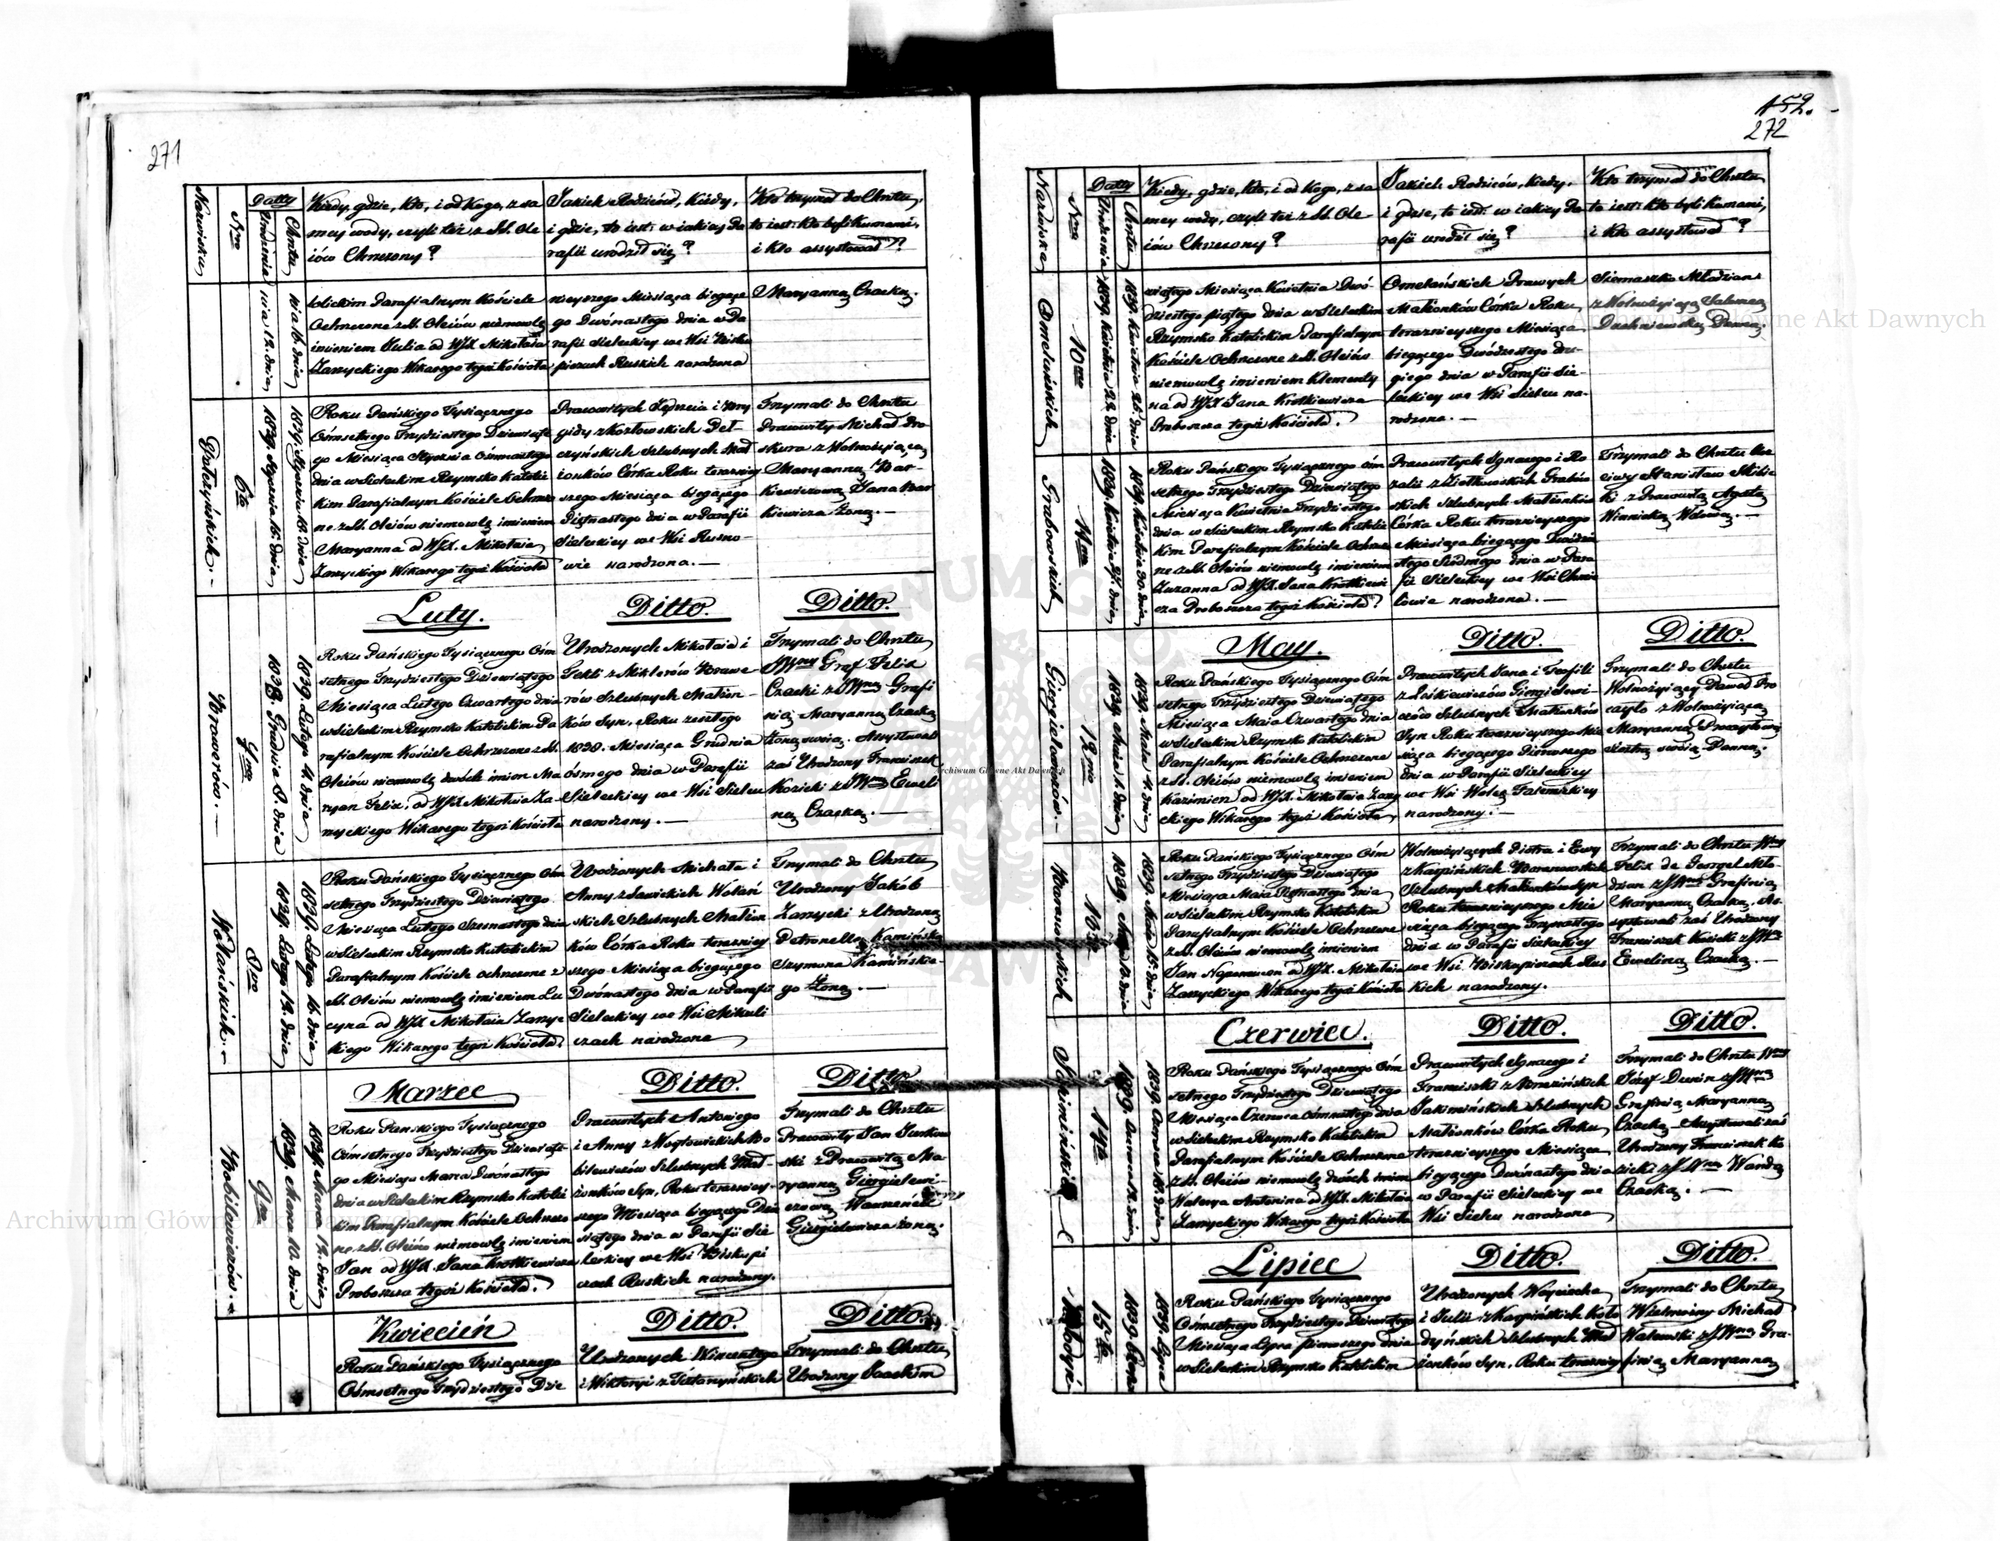 271
Nazwiska
Nro
Datty
Urodzenia
Chrztu
Kiedy, gdzie, Kto, i od Kogo, z sa
mey wody, czyli też z SS. Ole
iów Chrzczony?
Jakich Rodziców, Kiedy,
i gdzie, to iest: w iakiey Pa
rafii urodził się?
Kto trzymał do Chrztu,
to iest: Kto byli Kumami,
i Kto assystował?
nia 12. dnia
nia 16. dnia
tolickim Parafialnym Kościele
Ochrzczone z SS. Oleiów niemowlę
imieniem Julia od WJX. Mikołaia
Zarzyckiego Wikarego tegoż Kościoła
nieyszego Miesiąca biegące
go Dwónastego dnia w Pa
rafii Sieleckiey we Wsi Bisku
piczach Ruskich narodzona
Maryanną Czacką.
6te
1839. Stycznia 15. dnia
1839. Stycznia 18. dnia
Roku Pańskiego Tysiącznego
Ośmsetnego Trzydziestego Dziewiąte
go Miesiąca Stycznia Ośmnastego
dnia w Sieleckim Rzymsko Katolic
kim Parafialnym Kościele Ochrzczo
ne z SS. Oleiów niemowlę imieniem
Maryanna od WJX. Mikołaia
Zarzyckiego Wikarego tegoż Kościoła
Pracowitych Jędrzeia i Bry
gidy z Kozłowskich
Szlubnych Mał
żonków Córka Roku terazniey
szego Miesiąca biegącego
Piętnastego dnia w Parafii
Sieleckiey we Wsi Rusno
wie narodzona. —
Trzymali do Chrztu
Pracowity Michał Pro
skura z Wolnożyiącą
Maryanną
Jana
kiewicza Żoną. —
Luty.
Ditto.
Ditto.
Browarów. —
7me
1838. Grudnia 8. dnia
1839. Lutego 4. dnia
Roku Pańskiego Tysiącznego Óśm
setnego Trzydziestego Dziewiątego
Miesiąca Lutego Czwartego dnia
w Sieleckim Rzymsko Katolickim Pa
rafialnym Kościele Ochrzczone z SS.
Oleiów niemowlę dwóch imion Ma
ryan Felix, od WJX. Mikołaia Za
rzyckiego Wikarego tegoż Kościoła
Urodzonych Mikołaia i
Tekli z Miklerów Browa
rów Szlubnych Małżon
ków Syn, Roku zeszłego
1838. Miesiąca Grudnia
ósmego dnia w Parafii
Sieleckiey we Wsi Sielcu
narodzony. —
Trzymali do Chrztu
JWny Graf Felix
Czacki z JWną Grafi
nią Maryanną Czacką
Żoną swoią. Assystował
zaś Urodzony Franciszek
Kozicki z JWną Eweli
ną Czacką. —
Wolańskich. —
8me
1839. Lutego 12. dnia
1839. Lutego 16. dnia
Roku Pańskiego Tysiącznego Ośm
setnego Trzydziestego Dziewiątego
Miesiąca Lutego Szesnastego dnia
w Sieleckim Rzymsko Katolickim
Parafialnym Kościele ochrzczone z
SS. Oleiów niemowlę imieniem Lu
cyna od WJX. Mikołaia Zarzyc
kiego Wikarego tegoż Kościoła
Urodzonych Michała i
Anny z Sawickich Wolań
skich Szlubnych Małżon
ków Córka Roku terazniey
szego Miesiąca biegącego
Dwónastego dnia w Parafii
Sieleckiey we Wsi Mikuli
czach narodzona
Trzymali do Chrztu
Urodzony Jakób
Zarzycki z Urodzoną
Petronellą Kamińską
Szymona Kamińskie
go Żoną. —
Marzec
Ditto.
Ditto.
Bobilewiczów. —
9te
1839. Marca 10. dnia
1839. Marca 12. dnia
Roku Pańskiego Tysiącznego
Ośmsetnego Trzydziestego Dziewiąte
go Miesiąca Marca Dwónastego
dnia w Sieleckim Rzymsko Katolic
kim Parafialnym Kościele Ochrzczo
ne z SS. Oleiów niemowlę imieniem
Jan od WJX. Jana Krotkiewicza
Proboszcza tegoż Kościoła.
Pracowitych Antoniego
i Anny z Węgłowickich Bo
bilewiczów Szlubnych Mał
żonków Syn, Roku terazniey
szego Miesiąca biegącego Dzie
siątego dnia w Parafii Sie
leckiey we Wsi Biskupi
czach Ruskich narodzony.
Trzymali do Chrztu
Pracowity Jan Jurkow
ski z Pracowitą Ma
ryanną Giergielewi
czową Wawrzeńca
Giergielewicza żoną.
Kwiecień
Ditto.
Ditto.
Roku Pańskiego Tysiącznego
Ośmsetnego Trzydziestego Dzie
Urodzonych Wincentego
i Wiktoryi z
Trzymali do Chrztu
Urodzony Joachim
152.
272
Nazwiska
Nro
Datty
Urodzenia
Chrztu
Kiedy, gdzie, Kto, i od Kogo, z sa
mey wody, czyli też z SS. Ole
iów Chrzczony?
Jakich Rodziców, Kiedy,
i gdzie, to iest: w iakiey Pa
rafii urodził się?
Kto trzymał do Chrztu
to iest: Kto byli Kumami,
i Kto assystował?
Omelańskich
10me
1839. Kwietnia 22. dnia
1839. Kwietnia 25. dnia
wiątego Miesiąca Kwietnia Dwó
dziestego piątego dnia w Sieleckim
Rzymsko Katolickim Parafialnym
Kościele Ochrzczone z SS. Oleiów
niemowlę imieniem Klementy
na od WJX. Jana Krotkiewicza
Proboszcza tegoż Kościoła.
Omelańskich Prawych
Małżonków Córka Roku
terazniejszego Miesiąca
biegącego Dwódziestego dru
giego dnia w Parafii Sie
leckiey we Wsi Sielcu na
rodzona. —
Siemaszko Młodzian
z Wolnożyiącą Salomeą
Panną.
Grabowskich
11te
1839. Kwietnia 27. dnia
1839. Kwietnia 30 dnia
Roku Pańskiego Tysiącznego Ośm
setnego Trzydziestego Dziewiątego
Miesiąca Kwietnia Trzydziestego
dnia w Sieleckim Rzymsko Katolic
kim Parafialnym Kościele Ochrzczo
ne z SS. Oleiów niemowlę imieniem
Zuzanna od WJX. Jana Krotkiewi
cza Proboszcza tegoż Kościoła?
Pracowitych Ignacego i Ro
zalii z Ziołkowskich Grabow
skich Szlubnych Małżonków
Córka Roku terazniejszego
Miesiąca biegącego Dwódzie
stego Siódmego dnia w Para
fii Sieleckiey we Wsi Chmie
lówie narodzona. —
Trzymali do Chrztu
Stanisław
z Pracowitą Agatą
Winnicką Wdową. —
May.
Ditto.
Ditto.
Giergielewiczów. —
12te
1839. Maia 1. dnia
1839. Maia 4. dnia
Roku Pańskiego Tysiącznego Ośm
setnego Trzydziestego Dziewiątego
Miesiąca Maia Czwartego dnia
w Sieleckim Rzymsko Katolickim
Parafialnym Kościele Ochrzczone
z SS. Oleiów niemowlę imieniem
Kazimierz od WJX. Mikołaia Zarzy
ckiego Wikarego tegoż Kościoła
Pracowitych Jana i Teofili
z Giergielewi
czów Szlubnych Małżonków
Syn Roku terazniejszego Mie
siąca biegącego Pierwszego
dnia w Parafii Sieleckiey
we Wsi
narodzony. —
Trzymali do Chrztu
Wolnożyiący Dawid Pro
cayło z Wolnożyiącą
Maryanną
siostrą swoią Panną.
Baranowskich
13te
1839. Maia 13. dnia
1839. Maia 15. dnia
Roku Pańskiego Tysiącznego Ośm
setnego Trzydziestego Dziewiątego
Miesiąca Maia Piętnastego dnia
w Sieleckim Rzymsko Katolickim
Parafialnym Kościele Ochrzczone
z SS. Oleiów niemowlę imieniem
Jan Nepomucen od WJX. Mikołaia
Zarzyckiego Wikarego tegoż Kościoła
Wolnożyiących Piotra i Ewy
z Karpińskich Baranowskich
Szlubnych Małżonków Syn
Roku terazniejszego Mie
siąca biegącego Trzynastego
dnia w Parafii Sieleckiey
we Wsi Biskupiczach Rus
kich narodzony.
Trzymali do Chrztu Wny
Felix de Mło
dzian z JWną Grafinią
Maryanną Czacką, As
systowali zaś Urodzony
Franciszek Kozicki z JWną
Eweliną Czacką. —
Czerwiec.
Ditto.
Ditto.
14te
1839. Czerwca 12. dnia
1839. Czerwca 18. dnia
Roku Pańskiego Tysiącznego Ośm
setnego Trzydziestego Dziewiątego
Miesiąca Czerwca Ośmnastego dnia
w Sieleckim Rzymsko Katolickim
Parafialnym Kościele Ochrzczone
z SS. Oleiów niemowlę dwóch imion
Walerya Antonina od WJX. Mikołaia
Zarzyckiego Wikarego tegoż Kościoła
Pracowitych Ignacego i
Franciszki z
Jakimińskich Szlubnych
Małżonków Córka Roku
terazniejszego Miesiąca
biegącego Dwónastego dnia
w Parafii Sieleckiey we
Wsi Sielcu narodzona
Trzymali do Chrztu Wny
Józef z JWną
Grafinią Maryanną
Czacką. Assystowali zaś
Urodzony Franciszek Ko
zicki z JWną Wandą
Czacką. —
Lipiec
Ditto.
Ditto.
15te
Roku Pańskiego Tysiącznego
Ośmsetnego Trzydziestego Dziewiątego
Miesiąca Lipca pierwszego dnia
w Sieleckim Rzymsko Katolickim
Urodzonych Woyciecha
i Julii z Karpińskich Koło
dyńskich Szlubnych Mał
żonków Syn, Roku terazniey
Trzymali do Chrztu
Wielmożny Michał
Walewski z JWną Gra
finią Maryanną
Archiwum Główne Akt Dawnych
Archiwum Główne Akt Dawnych
Archiwum Główne Akt Dawnych